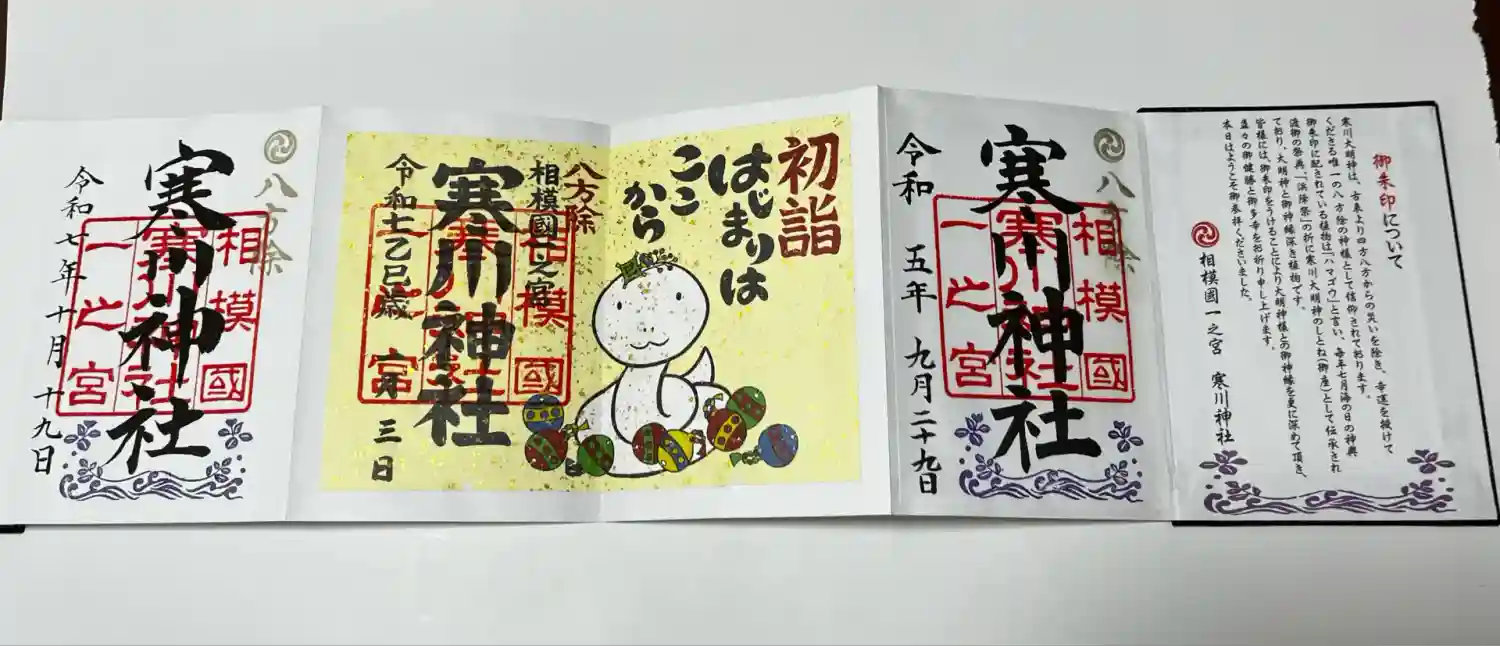 御朱印について
寒川大明神は、古来より四方八方からの災いを除き、幸運を授けて
くださる唯一の八方除の神様として信仰されております。
御朱印に配されている植物は「ハマゴウ」と言い、毎年七月海の日の神輿
渡御の祭典、「浜降祭」の折に寒川大明神のしとね(御座)として伝承され
ており、大明神と御神縁深き植物です。
皆様には、御朱印をうけることにより大明神様との御神縁を更に深めて頂き、
益々の御健勝と御多幸をお祈り申し上げます。
本日はようこそ御参拝くださいました。
相模國一之宮 寒川神社
八方除
相模國
寒川神社
一之宮
寒川神社
令和 五年 九月二十九日
初詣
はじまりは
ここ
から
八方除
相模國一之宮
相模國
寒川神社
一之宮
寒川神社
令和七乙巳歳 月三日
八方除
相模國
寒川神社
一之宮
寒川神社
令和 七年 十月 十九日